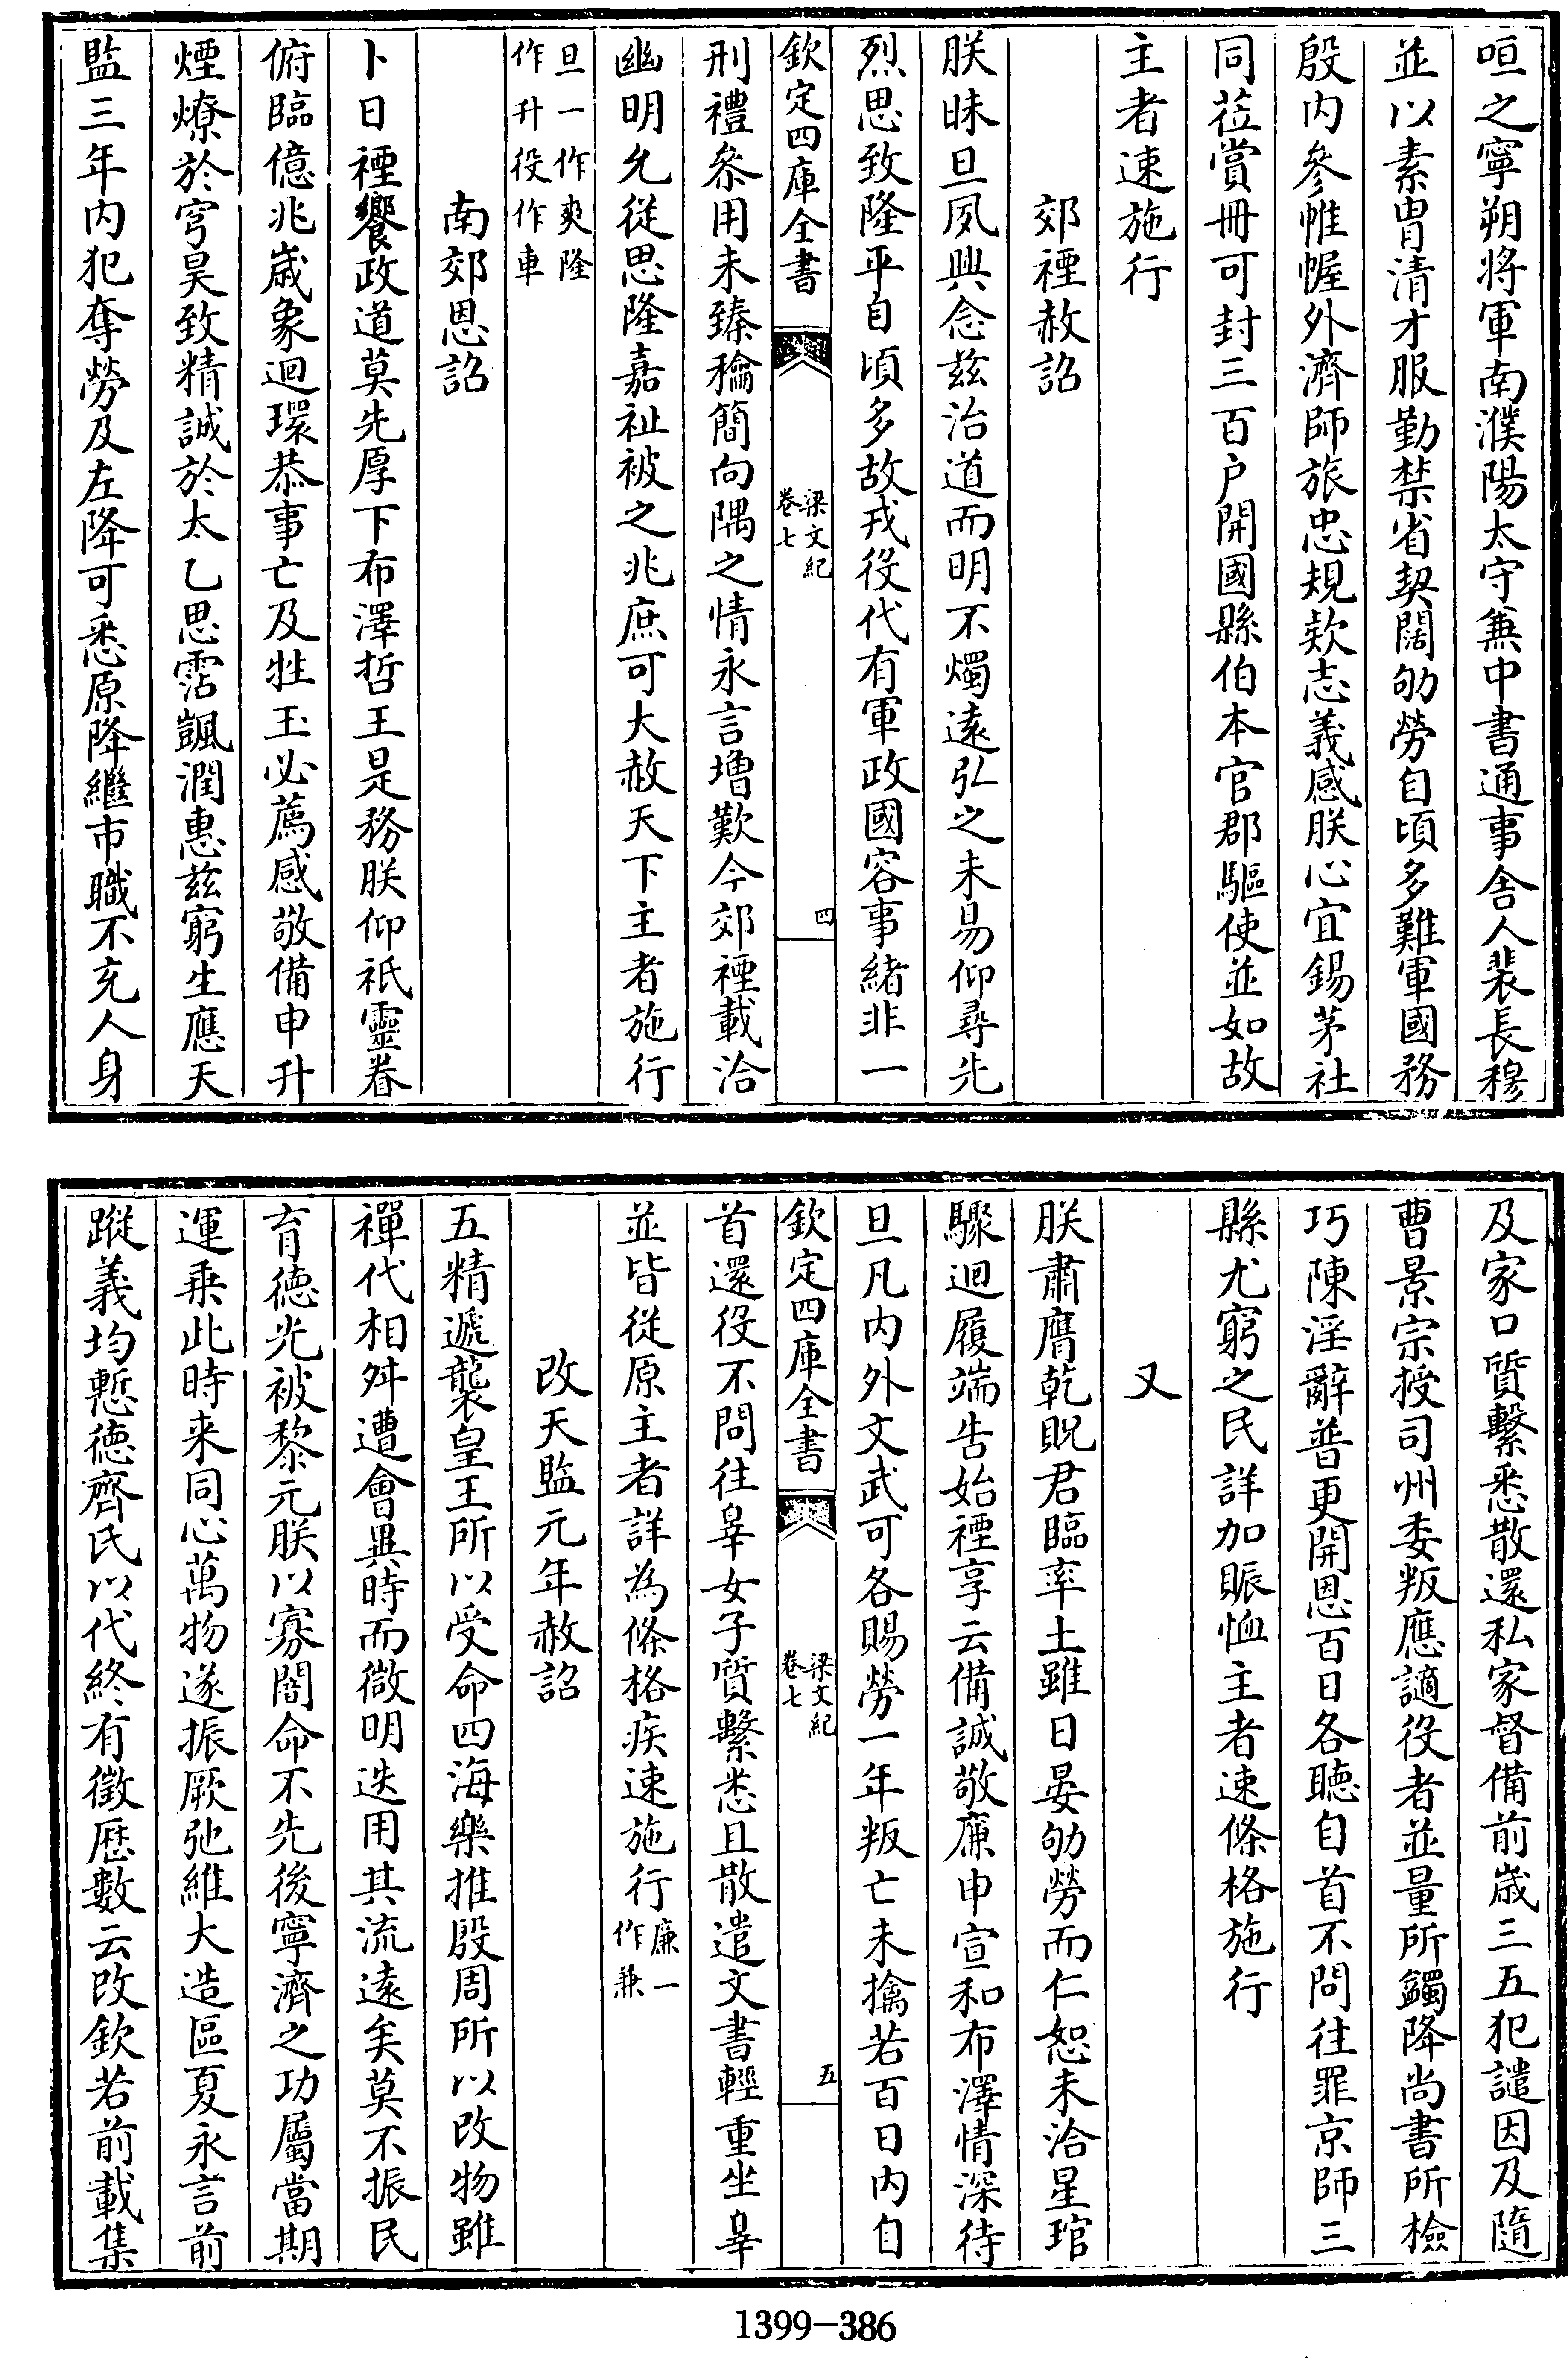 咺之寧朔將軍南濮陽太守兼中書通事舍人裴長穆
並以素冑清才服勤禁省契闊劬勞自頃多難軍國務
殷内參帷幄外濟師旅忠規欵志義感朕心宜錫茅社
同莅賞冊可封三百户開國縣伯本官郡驅使並如故
主者速施行
郊禋赦詔
朕昧旦夙興念兹治道而明不燭遠弘之未易仰尋先
烈思致隆平自頃多故戎役代有軍政國容事緒非一
欽定四庫全書
梁文紀
卷七
四
刑禮叅用未臻稐簡向隅之情永言增歎今郊禋載洽
幽明允從思隆嘉祉被之兆庶可大赦天下主者施行
旦一作爽隆
作升役作車
南郊恩詔
卜日禋饗政道莫先厚下布澤哲王是務朕仰祇靈眷
俯臨億兆歳象迴環恭事亡及牲玉必薦感敬備申升
煙燎於穹昊致精誠於太乙思霑飊潤惠兹窮生應天
監三年内犯奪勞及左降可悉原降繼市職不充人身
及家口質繫悉散還私家督備前歳三五犯譴因及隨
曹景宗授司州委叛應讁役者並量所蠲降尚書所檢
巧陳淫辭普更開恩百日各聽自首不問往罪京師三
縣尤窮之民詳加賑恤主者速條格施行
又
朕肅膺乾貺君臨率土雖日晏劬勞而仁恕未洽星琯
驟迴履端告始禋享云備誠敬廉申宣和布澤情深待
旦凡内外文武可各賜勞一年叛亡未擒若百日内自
欽定四庫全書
梁文紀
卷七
五
首還役不問往辠女子質繫悉且散遣文書輕重坐辠
並皆從原主者詳為條格疾速施行廉一
作兼
改天監元年赦詔
五精遞襲皇王所以受命四海樂推殷周所以改物雖
禪代相舛遭會異時而微明迭用其流遠矣莫不振民
育徳光被黎元朕以寡闇命不先後寧濟之功屬當期
運乗此時来同心萬物遂振厥弛維大造區夏永言前
蹤義均慙徳齊氏以代終有徵歴數云改欽若前載集
1399-386